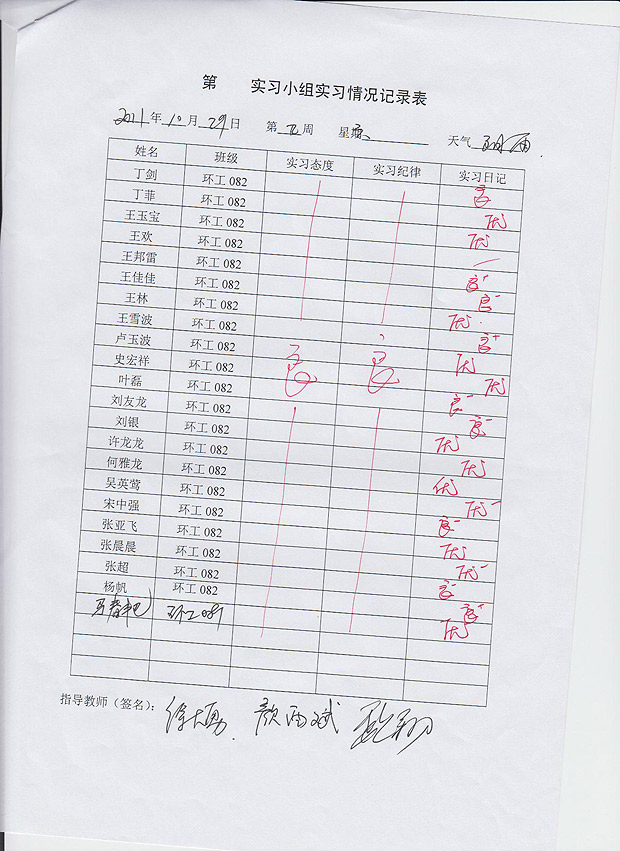 第 实习小组实习情况记录表
2011年10月29日 第五周 星期 天气 雨
姓名 班级 实习态度 实习纪律 实习日记
丁剑 环工082 良
丁菲 环工082 优
王玉宝 环工082 优
王欢 环工082
王邦雷 环工082 良+
王佳佳 环工082 良-
王林 环工082 优
王雪波 环工082 良+
卢玉波 环工082 优
史宏祥 环工082 良 良 优
叶磊 环工082 良-
刘友龙 环工082 良-
刘银 环工082 优
许龙龙 环工082 优
何雅龙 环工082 优
吴英莺 环工082 优-
宋中强 环工082 良-
张亚飞 环工082 优
张晨晨 环工082 优-
张超 环工082 良-
杨帆 环工082 良+
环工081 优
指导教师（签名）：